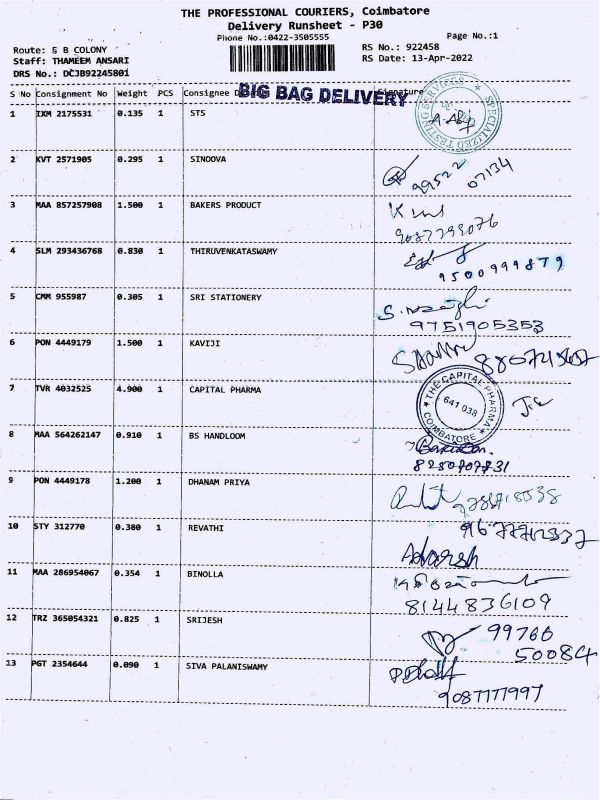 THE PROFESSIONAL COURIERS, Coimbatore
Delivery Runsheet - P30
Phone No.:0422-3505555
Page No.:1
Route: G B COLONY
Staff: THAMEEM ANSARI
DRS No.: DCJB92245801
RS No.: 922458
RS Date: 13-Apr-2022
S No Consignment No Weight PCS Consignee Signature
BIG BAG DELIVERY
1 IXM 2175531 0.135 1 STS
SPECIALIZED TESTING SERVICES
2 KVT 2571905 0.295 1 SINOOVA
99522 07134
3 MAA 857257908 1.500 1 BAKERS PRODUCT
4 SLM 293436768 0.830 1 THIRUVENKATASWAMY
9500999879
5 CMM 955987 0.305 1 SRI STATIONERY
9751905353
6 PON 4449179 1.500 1 KAVIJI
7 TVR 4032525 4.900 1 CAPITAL PHARMA
THE CAPITAL PHARMA
641 038
COIMBATORE
8 MAA 564262147 0.910 1 BS HANDLOOM
9 PON 4449178 1.200 1 DHANAM PRIYA
10 STY 312770 0.380 1 REVATHI
Adarsh
11 MAA 286954067 0.354 1 BINOLLA
8144836109
12 TRZ 365054321 0.825 1 SRIJESH
99766
50084
13 PGT 2354644 0.090 1 SIVA PALANISWAMY
9087177997